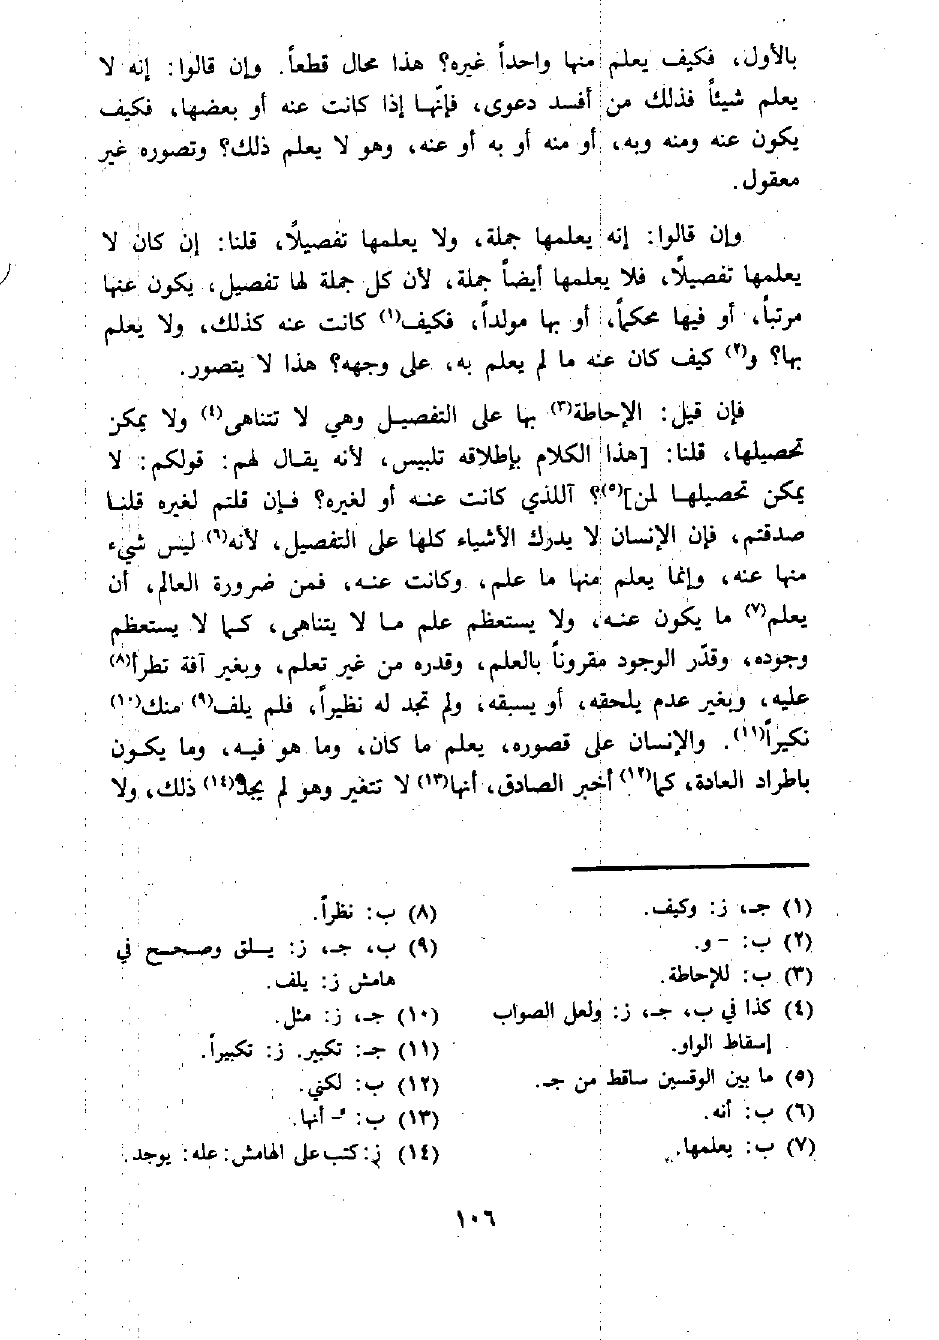 بالأول، فكيف يعلم منها واحداً غيره؟ هذا محال قطعاً. وإن قالوا: إنه لا
يعلم شيئاً فذلك من أفسد دعوى، فإنّها إذا كانت عنه أو بعضها، فكيف
يكون عنه ومنه وبه، أو منه أو به أو عنه، وهو لا يعلم ذلك؟ وتصوره غير
معقول.
وإن قالوا: إنه يعلمها جملة، ولا يعلمها تفصيلاً، قلنا: إن كان لا
يعلمها تفصيلاً، فلا يعلمها أيضاً جملة، لأن كل جملة لها تفصيل، يكون عنها
مرتباً، أو فيها محكماً، أو بها مولداً، فكيف(١) كانت عنه كذلك، ولا يعلم
بها؟ و(٢) كيف كان عنه ما لم يعلم به، على وجهه؟ هذا لا يتصور.
فإن قيل: الإحاطة(٣) بها على التفصيل وهي لا تتناهى(٤) ولا يمكن
تحصيلها، قلنا: [هذا الكلام بإطلاقه تلبيس، لأنه يقال لهم: قولكم: لا
يمكن تحصيلها لمن](٥)؟ آللذي كانت عنه أو لغيره؟ فإن قلتم لغيره قلنا
صدقتم، فإن الإنسان لا يدرك الأشياء كلها على التفصيل، لأنه(٦) ليس شيء
منها عنه، وإنما يعلم منها ما علم، وكانت عنه، فمن ضرورة العالم، أن
يعلم(٧) ما يكون عنه، ولا يستعظم علم ما لا يتناهى، كما لا يستعظم
وجوده، وقدّر الوجود مقروناً بالعلم، وقدره من غير تعلم، وبغير آفة تطرأ(٨)
عليه، وبغير عدم يلحقه، أو يسبقه، ولم تجد له نظيراً، فلم يلف(٩) منك(١٠)
نكيراً(١١). والإنسان على قصوره، يعلم ما كان، وما هو فيه، وما يكون
باطراد العادة، كما(١٢) أخبر الصادق، أنها(١٣) لا تتغير وهو لم يجد(١٤) ذلك، ولا
(١) جـ، ز: وكيف.
(٢) ب: - و.
(٣) ب: للإحاطة.
(٤) كذا في ب، جـ، ز: ولعل الصواب
إسقاط الواو.
(٥) ما بين الوقسين ساقط من جـ.
(٦) ب: أنه.
(٧) ب: يعلمها.
(٨) ب: نظراً.
(٩) ب، جـ، ز: يلق وصحح في
هامش ز: يلف.
(١٠) جـ، ز: مثل.
(١١) جـ: تكبير. ز: تكبيراً.
(١٢) ب: لكني.
(١٣) ب: - أنها.
(١٤) ز: كتب على الهامش: عله: يوجد.
١٠٦